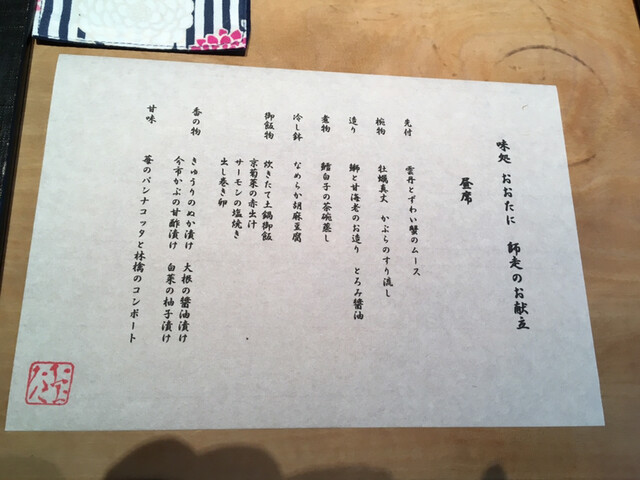 味処 おおたに 師走のお献立
昼席
先付 雲丹とずわい蟹のムース
椀物 牡蠣真丈 かぶらのすり流し
造り 鰤と甘海老のお造り とろみ醤油
煮物 鱈白子の茶碗蒸し
冷し鉢 なめらか胡麻豆腐
御飯物 炊きたて土鍋御飯
京菊菜の赤出汁
サーモンの塩焼き
出し巻き卵
香の物 きゅうりのぬか漬け 大根の醤油漬け
今市かぶの甘酢漬け 白菜の柚子漬け
甘味 のパンナコッタと林檎のコンポート